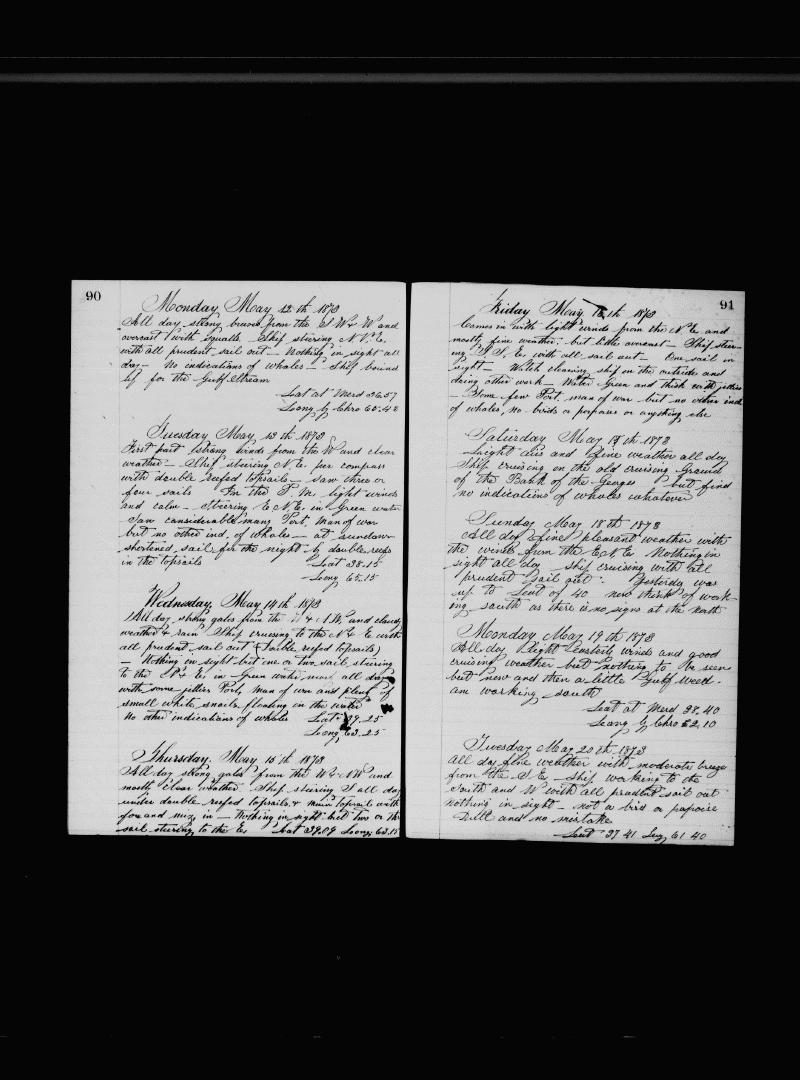 90
Monday May 12th 1873
All day strong breeze from the S W & W and
overcast with squalls - Ship steering N. N. E.
with all prudent sail out - Nothing in sight all
day - No indications of whales - Ship bound
for the Gulf Stream
Lat at Merd 36.57
Long by Chro 65.42
Tuesday May 13th 1873
First part strong winds from the W and clear
weather - Ship steering N. E. per compass
with double reefed topsails - saw three or
four sails For the P. M. light winds
and calm - Steering E. N. E. in Green water
Saw considerable many Port, Man of war
but no other ind. of whales - at sundown
shortened sail for the night by double reefs
in the topsails Lat 38.15
Long 65.15
Wednesday, May 14th 1873
All day strong gales from the W & N. W. and cloudy
weather & rain Ship cruising to the N & E with
all prudent sail out (Double reefed topsails)
- Nothing in sight but one or two sail steering
to the N & E. in Green water all day
with some jellies Port, man of war and plenty of
small white snails floating in the water
No other indications of whales Lat 39.25
Long 63.25
Thursday. May 15th 1873
All day strong gales from the W & NW and
mostly clear weather Ship steering S all day
under double reefed topsails & main topsail with
fore and miz, in - Nothing in sight but two or
sail steering to the E. Lat 39.09 Long 63.15
91
Friday May 16th 1873
Comes in with light winds from the N. E. and
mostly fine weather. but little overcast - Ship steer-
ing S. S. E. with all sail out - One sail in
sight - Watch cleaning ship on the outside and
doing other work - Water Green and thick with jellies
- Some few Port, man of war but no other ind.
of whales, no birds or porpoise or anything else
Saturday May 17th 1873
Light airs and fine weather all day
Ship cruising on the old cruising Ground
of the Bank of the Georges but find
no indications of whales whatever
Sunday May 18th 1873
All day fine pleasant weather with
the wind from the E. N. E. Nothing in
sight all day ship cruising with all
prudent sail out - Yesterday was
up to Lat of 40 now think of work-
ing south as there is no signs at the North
Monday May 19th 1873
All day Light Easterly winds and good
cruising weather but nothing to be seen
but now and then a little Gulf weed.
am working south
Lat at Merd 38.40
Long by Chro 62.10
Tuesday May 20th 1873
All day fine weather with moderate breeze
from the S. E. - Ship working to the
South and W with all prudent sail out
nothing in sight - not a bird or papoise
Dull and no mistake
Lat 37 41 Lng 61 40